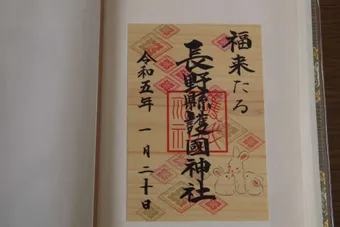 福来たる
長野縣護國神社
令和五年 一月二十日